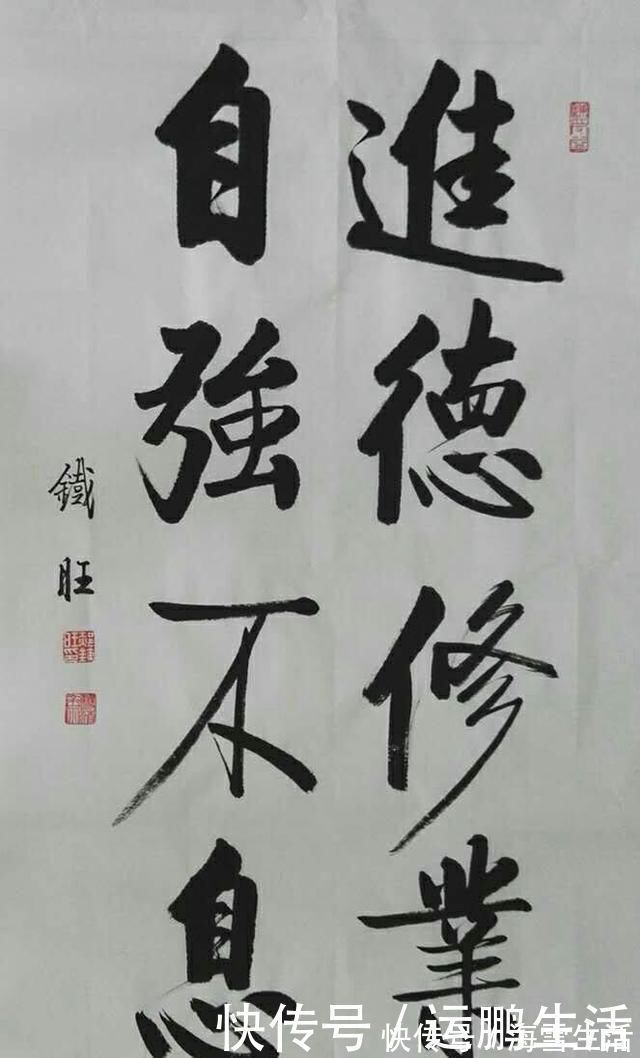 進德修業
自強不息
鐵旺
快传号/运鹏生活